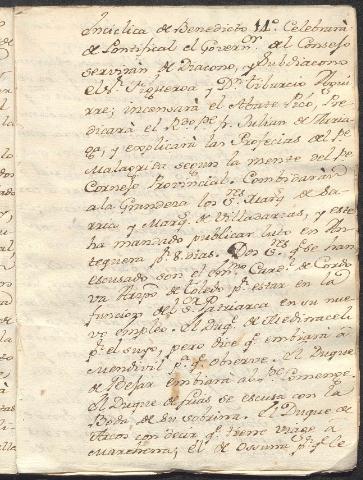 Encíclica de Benedicto 14º. Celebrará
de Pontifical el Govern.or del Consejo
servirán de Diacono, y Subdiacono
el S.r Figueroa y D.n Tiburcio Agui
rre; incensará el Abate Pico, Pre
dicará el R.do P.e Fr. Julian de Arria
ga, y explicará las Profecias del P.e
Malagrita segun la mente del P.e
Cornejo Provincial. Combidarán
a la Grandeza los S.res Marq.s de Sa
rria y Marq.s de Villadarias, y este
ha mandado publicar luto en An
tequera p.r 8. dias. Los S.res q.e se han
escusado son el Em.mo Card.l de Cordo
va Arzpo de Toledo p.r estar en la
funcion del S.r Patriarca en su nue
vo Empleo. El Duq.e de Medinaceli
p.r el suyo, pero dice q.e embiará á
Mondivil p.a q.e observe. El Duque
de Bejar embiará al P.e
El Duque de se escusa con la
Boda de su sobrina. El Duque de
Arcos con decir q.e tiene viage a
Marchena; el de Ossuna p.r q.e le